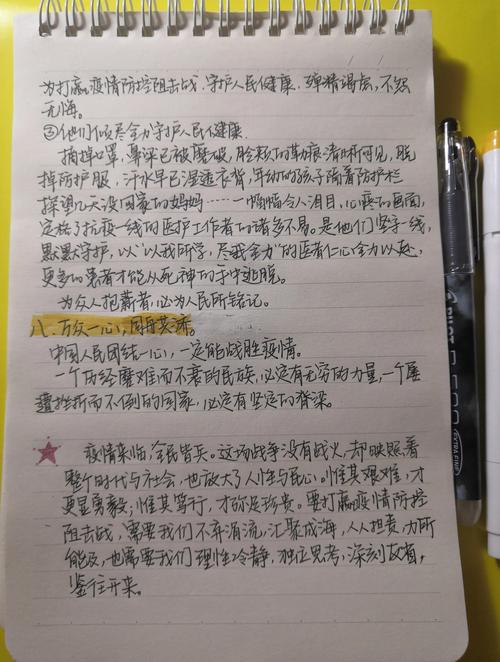 为打赢疫情防控阻击战、守护人民健康,殚精竭虑,不怨
无悔。
③他们倾尽全力守护人民健康.
摘掉口罩,鼻梁已被磨破,脸颊的勒痕清晰可见,脱
掉防护服,汗水早已湿透衣背,年幼的孩子隔着防护栏
探望几天没回家的妈妈……一帧帧令人泪目,心疼的画面,
定格了抗疫一线的医护工作者的诸多不易。是他们坚守一线,
默默守护,以“以我所学,尽我全力”的医者仁心全力以赴,
更多的患者才能从死神的手中逃脱。
为众人抱薪者,必为人民所铭记。
八.万众一心,同舟共济。
中国人民团结一心,一定能战胜疫情。
一个历经磨难而不衰的民族,必定有无穷的力量,一个屡
遭挫折而不倒的国家,必定有坚定的脊梁。
疫情来临,全民皆兵。这场战争没有战火,却映照着
整个时代与社会,也放大了人性与民心。惟其艰难,才
更显勇毅;惟其笃行,才弥足珍贵。要打赢疫情防控
阻击战,需要我们不弃涓流,汇聚成海,人人担责,力所
能及,也需要我们理性冷静,独立思考,深刻反省,
鉴往开来。
PILOT
V5
EXTRA FINE